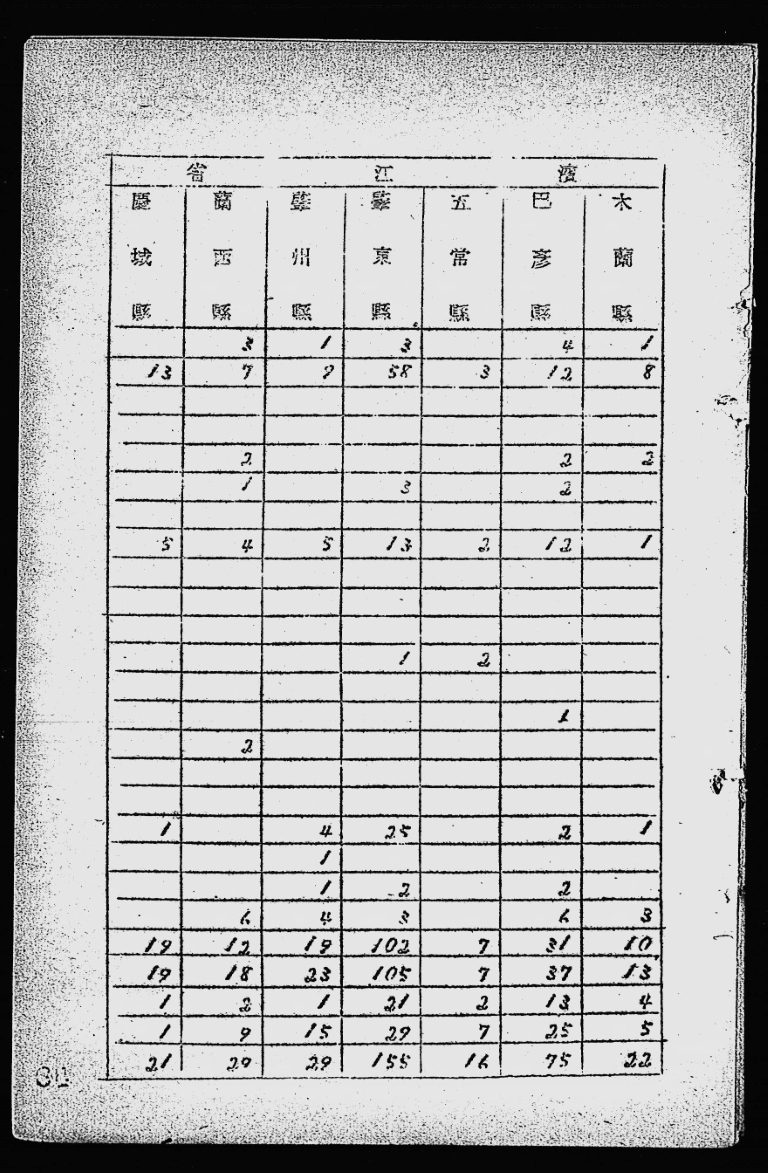 濱江省
慶城縣 蘭西縣 肇州縣 肇東縣 五常縣 巴彥縣 木蘭縣
3 1 3 4 1
13 7 58 3 12 8
2 2 2
1 3 2
5 4 5 13 2 12 1
1 2
1
2
1 4 25 2 1
1
1 2 2
6 4 3 6 3
19 12 19 102 7 31 10
19 18 23 105 7 37 13
1 2 1 21 2 13 4
1 9 15 29 7 25 5
21 29 29 155 16 75 22